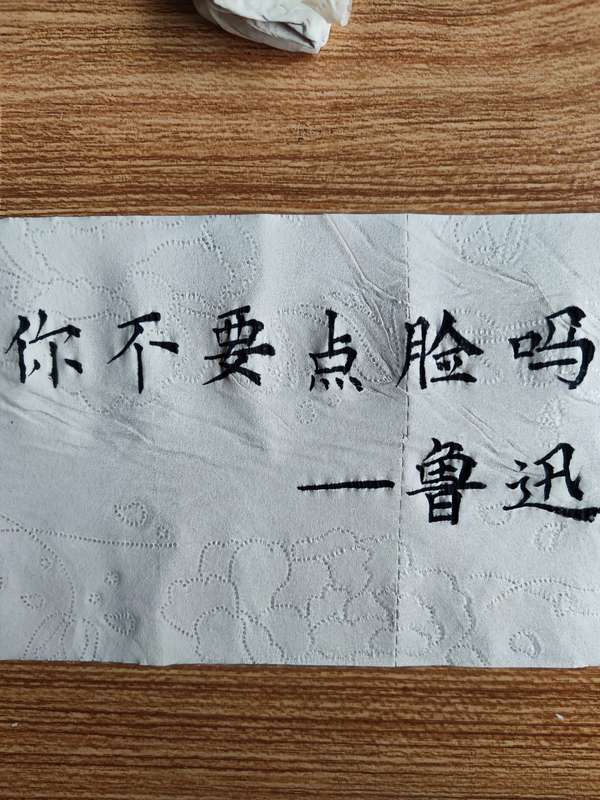 你不要点脸吗
—鲁迅